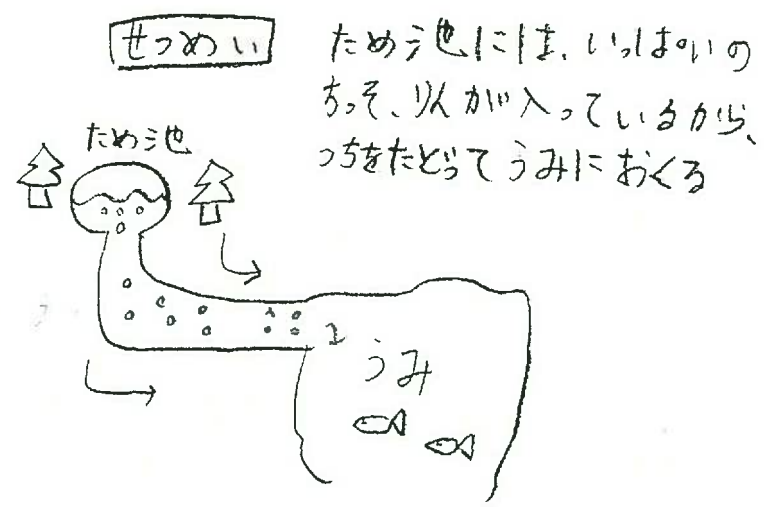 せつめい
ため池には、いっぱいの
ちっそ、りんが入っているから、
つちをたどってうみにおくる
ため池
うみ